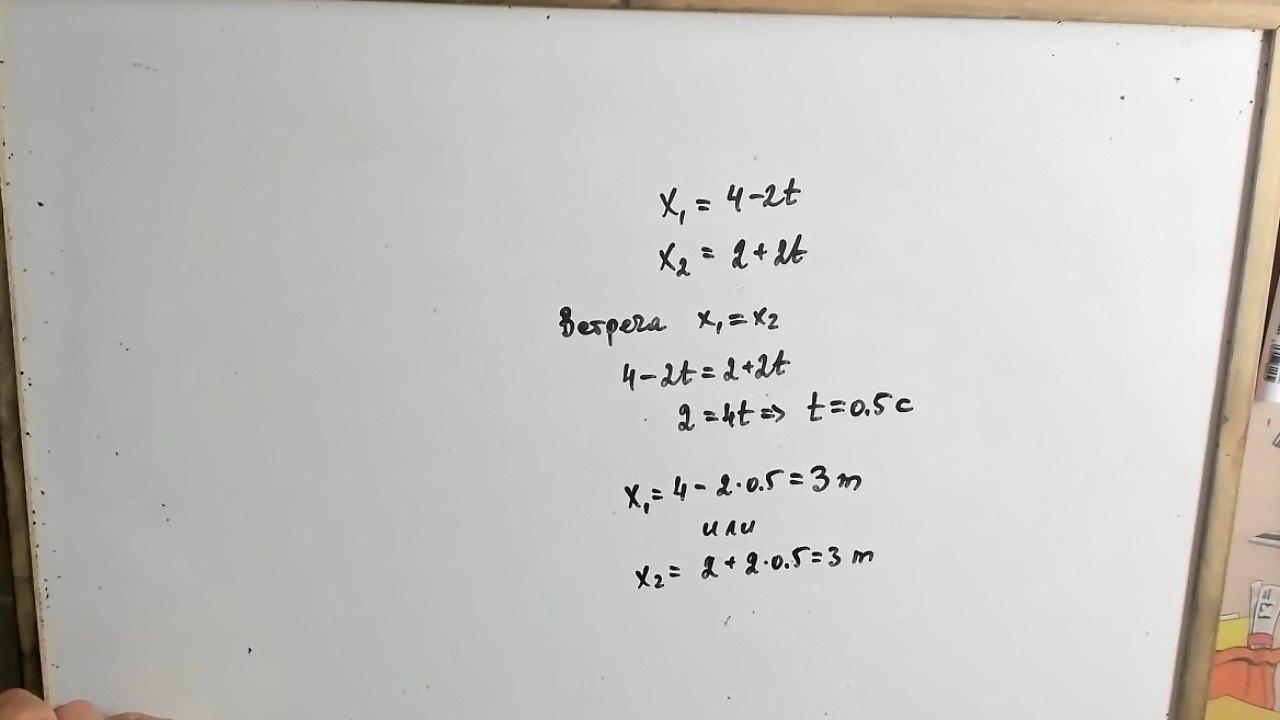 x₁ = 4-2t
x₂ = 2+2t
Встреча x₁=x₂
4-2t=2+2t
2=4t=> t=0.5 c
x₁= 4 - 2·0.5=3 m
или
x₂= 2+2·0.5=3 m